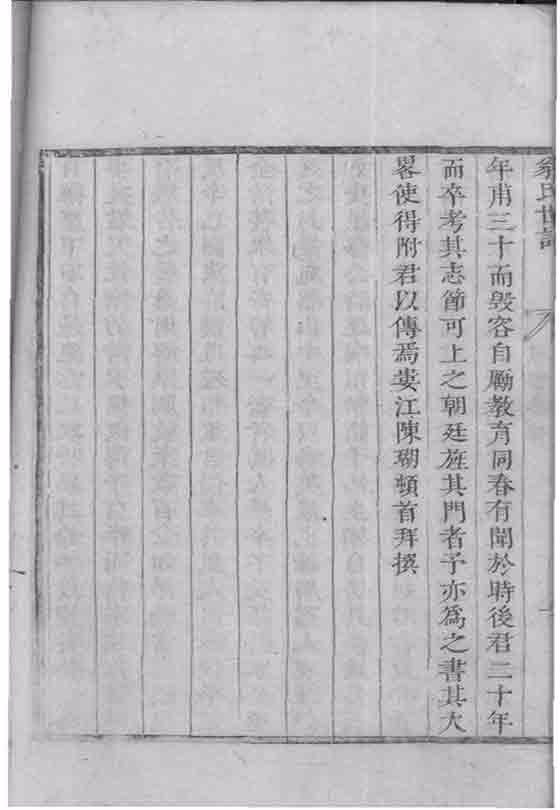 翁氏世譜
年甫三十而毀容自勵教育同春有聞於時後君二十年
而卒考其志節可上之朝廷旌其門者予亦爲之書其大
畧使得附君以傳焉婁江陳瑚頓首拜撰